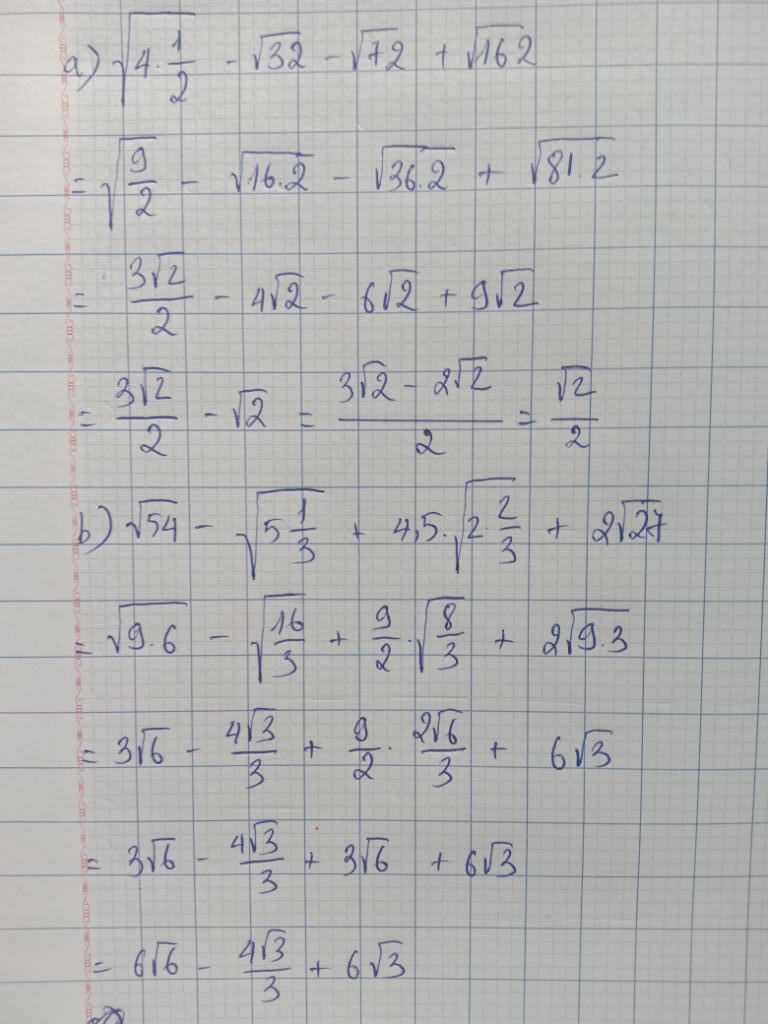 a) √(4·1/2) - √32 - √72 + √162
= √(9/2) - √(16.2) - √(36.2) + √(81.2)
= 3√2/2 - 4√2 - 6√2 + 9√2
= 3√2/2 - √2 = (3√2 - 2√2)/2 = √2/2
b) √54 - √(5 1/3) + 4,5.√(2·2/3) + 2√27
= √(9.6) - √(16/3) + 9/2.√(8/3) + 2√(9.3)
= 3√6 - 4√3/3 + 9/2. 2√6/3 + 6√3
= 3√6 - 4√3/3 + 3√6 + 6√3
= 6√6 - 4√3/3 + 6√3